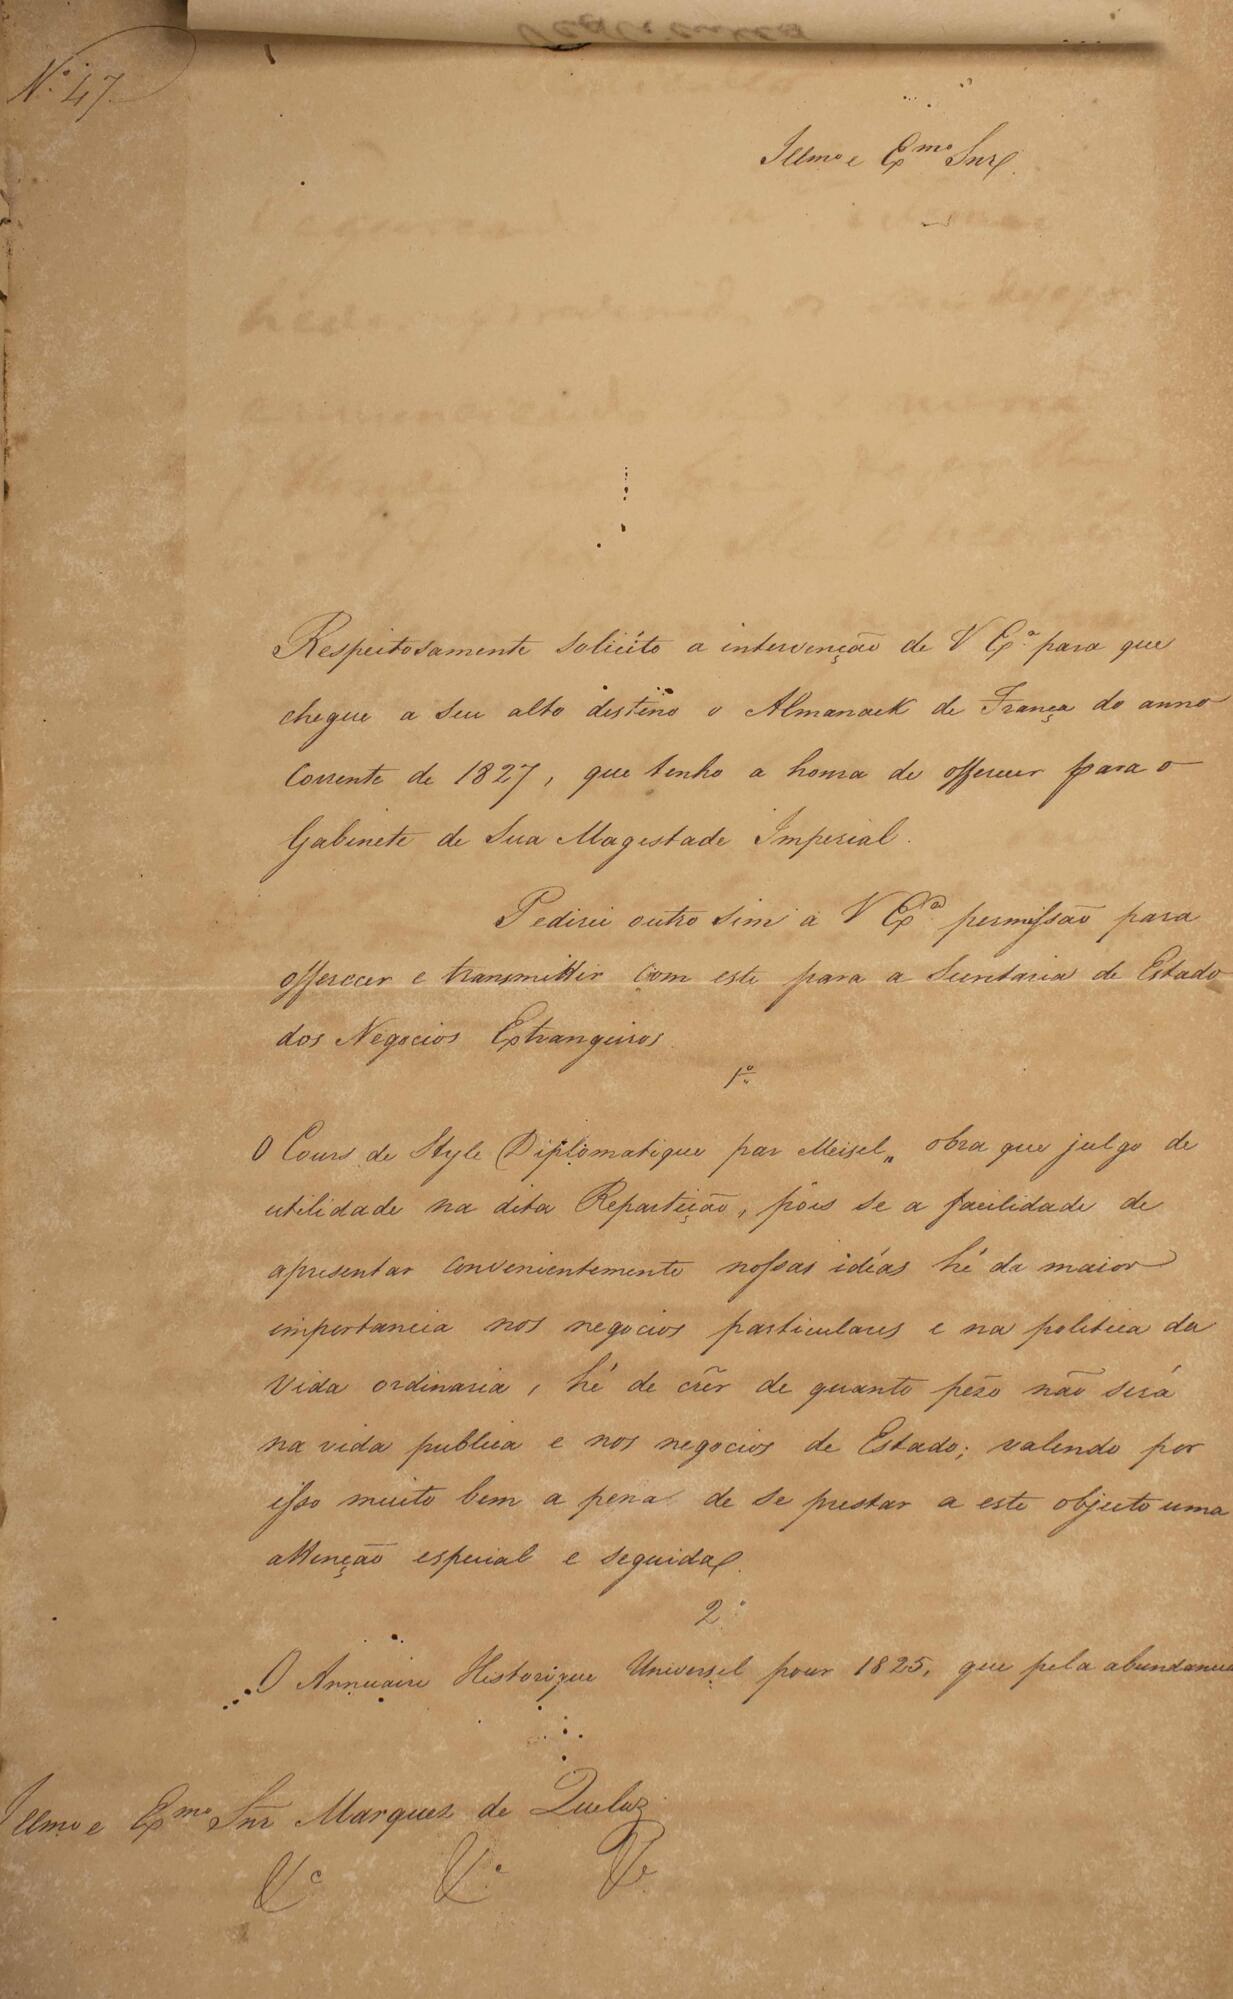 Nº 47
Illmo e Exmo Snr.
Respeitosamente solicito a intervenção de V Exª para que
chegue a seu alto destino o Almanack de França do anno
corrente de 1827, que tenho a honra de offerecer para o
Gabinete de Sua Magestade Imperial.
Pedirei outro sim a V Exª permissão para
offerecer e transmittir com este para a Secretaria de Estado
dos Negocios Extrangeiros
1º
O Cours de Style Diplomatique par Meisel„ obra que julgo de
utilidade na dita Repartição, pois se a facilidade de
apresentar convenientemente nossas idéas hé da maior
importancia nos negocios particulares e na politica da
vida ordinaria, hé de crêr de quanto pezo não será
na vida publica e nos negocios de Estado; valendo por
isso muito bem a pena de se prestar a este objecto uma
attenção especial e seguida.
2º
O Annuaire Historique Universel pour 1825, que pela abundancia
Illmo e Exmo Snr Marquez de Queluz